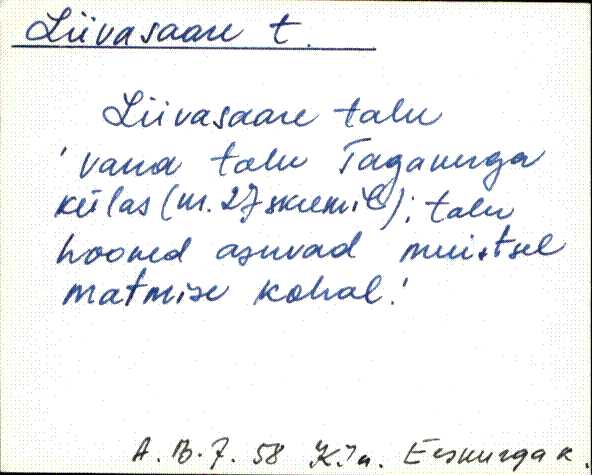 Liivasaare t.
Liivasaare talu
'vana talu Taganurga
külas (nr. 27 skeemil); talu
hooned asuvad muistsel
matmise kohal.'
A. B. 7. 58 KJn. Eesnurga k.